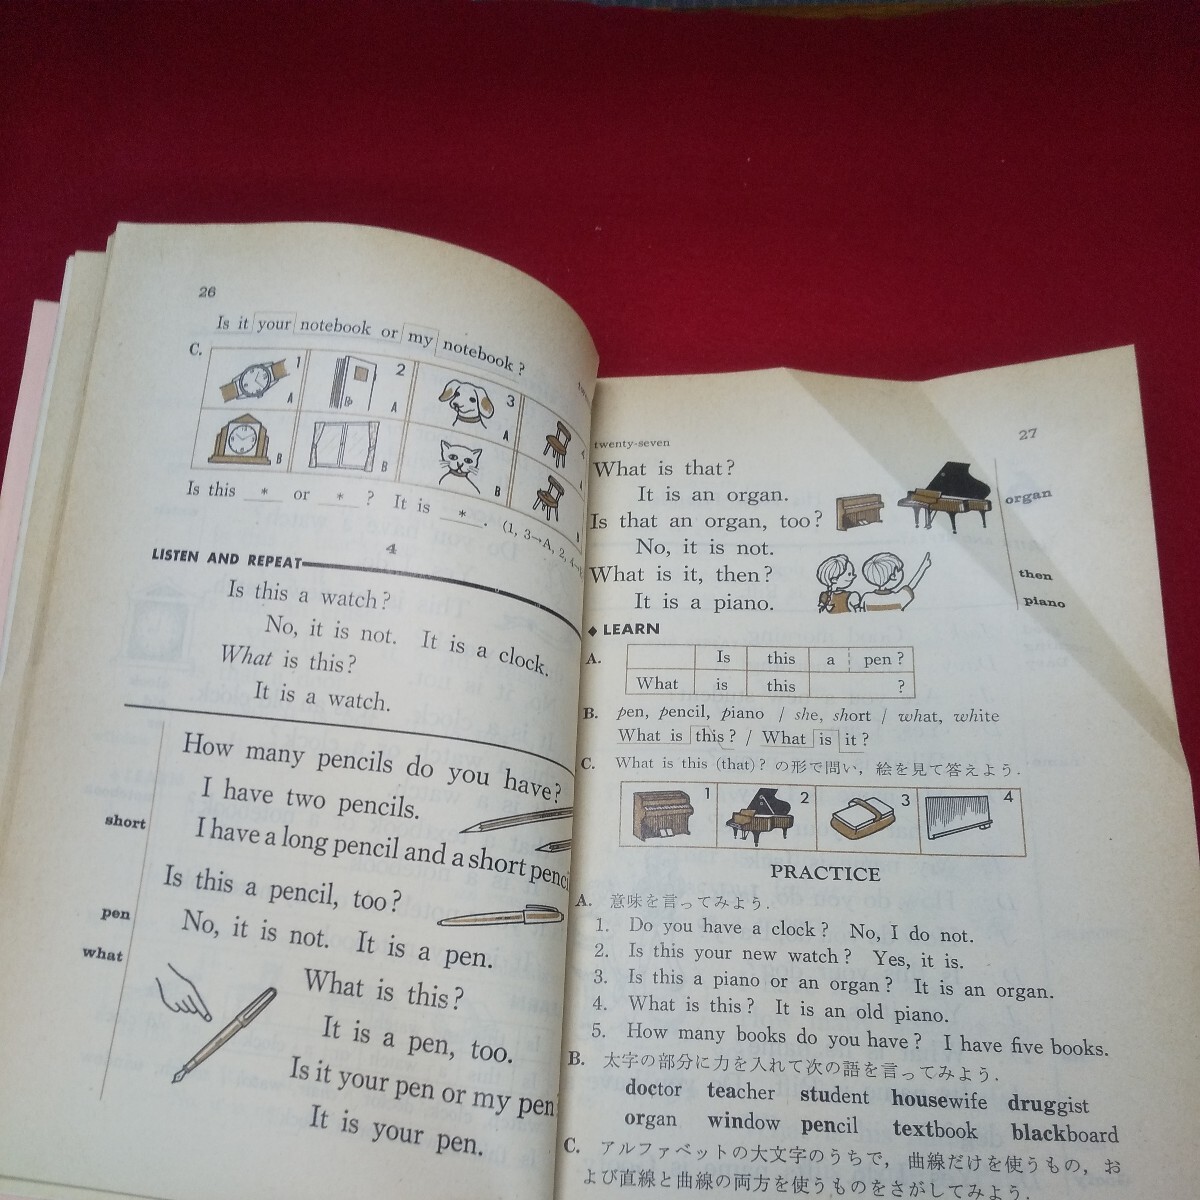 26
Is it your notebook or my notebook?
C.
1
A
B
2
A
B
3
A
B
4
4
Is this * or * ? It is * . (1, 3→A, 2, 4→
4
LISTEN AND REPEAT
Is this a watch?
No, it is not. It is a clock.
What is this?
It is a watch.
How many pencils do you have?
I have two pencils.
short
I have a long pencil and a short penci
Is this a pencil, too?
pen
No, it is not. It is a pen.
what
What is this?
It is a pen, too.
Is it your pen or my pen
It is your pen.
twenty-seven
27
What is that?
It is an organ.
organ
Is that an organ, too?
No, it is not.
What is it, then?
then
It is a piano.
piano
◆ LEARN
A.
Is this a pen?
What is this ?
B. pen, pencil, piano / she, short / what, white
What is this? / What is it?
C. What is this (that)? の形で問い，絵を見て答えよう.
1
2
3
4
PRACTICE
A. 意味を言ってみよう.
1. Do you have a clock? No, I do not.
2. Is this your new watch? Yes, it is.
3. Is this a piano or an organ? It is an organ.
4. What is this? It is an old piano.
5. How many books do you have? I have five books.
B. 太字の部分に力を入れて次の語を言ってみよう.
doctor teacher student housewife druggist
organ window pencil textbook blackboard
C. アルファベットの大文字のうちで，曲線だけを使うもの，お
よび直線と曲線の両方を使うものをさがしてみよう.